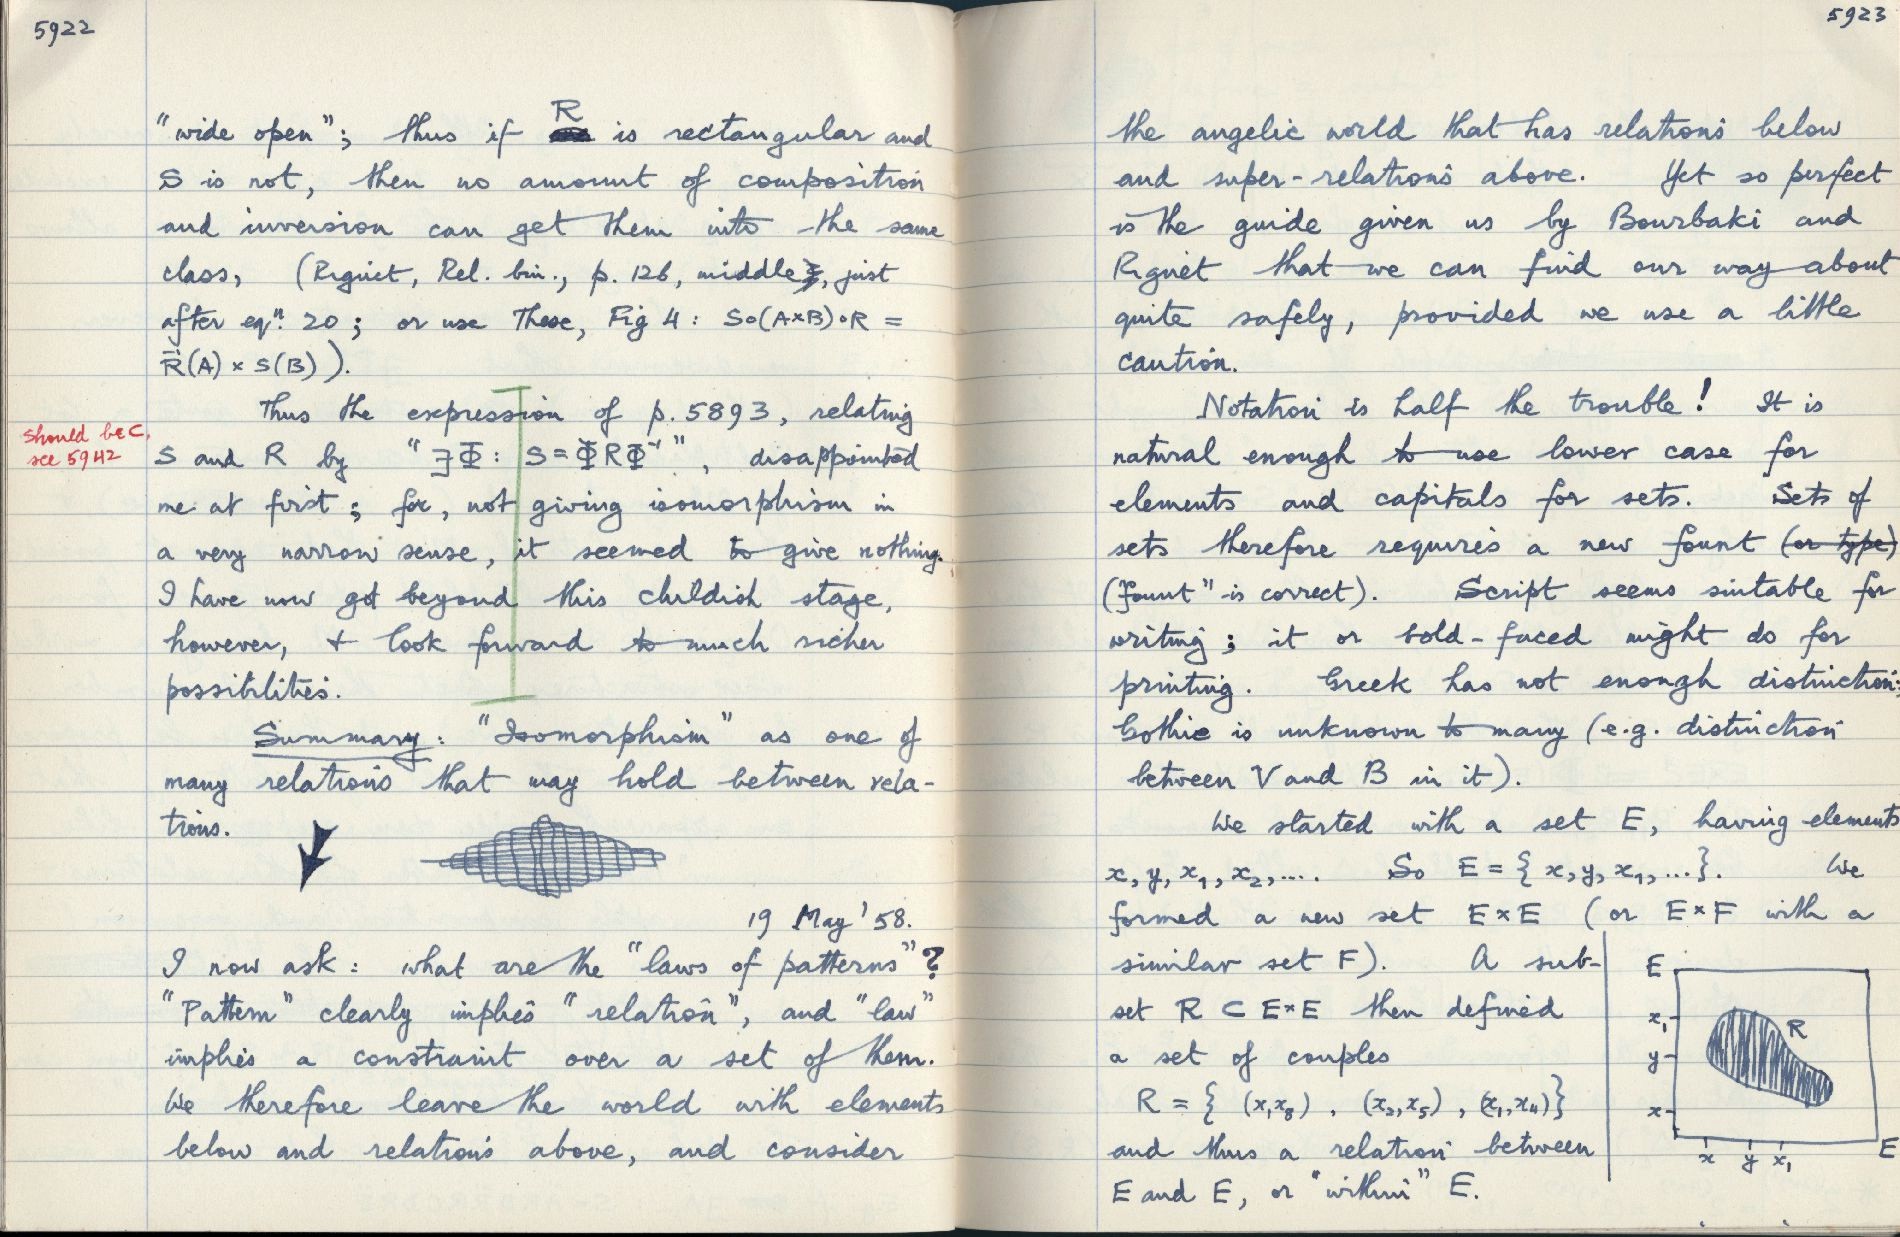 5922
"wide open"; thus if R is rectangular and
S is not, then no amount of composition
and inversion can get them into the same
class, (Riguet, Rel. bin., p. 126, middle, just
after eqn. 20; or use These, Fig 4: S∘(A×B)∘R =
R⁻¹(A) × S(B) ).
Thus the expression of p. 5893, relating
should be ⊂,
see 5942
S and R by "∃Φ: S = ΦRΦ⁻¹", disappointed
me at first; for, not giving isomorphism in
a very narrow sense, it seemed to give nothing.
I have now got beyond this childish stage,
however, & look forward to much richer
possibilities.
Summary: "Isomorphism" as one of
many relations that may hold between rela-
tions.
19 May '58.
I now ask: what are the "laws of patterns"?
"Pattern" clearly implies "relation", and "law"
implies a constraint over a set of them.
We therefore leave the world with elements
below and relations above, and consider
5923
the angelic world that has relations below
and super-relations above. Yet so perfect
is the guide given us by Bourbaki and
Riguet that we can find our way about
quite safely, provided we use a little
caution.
Notation is half the trouble! It is
natural enough to use lower case for
elements and capitals for sets. Sets of
sets therefore requires a new fount (or type)
(fount" is correct). Script seems suitable for
writing; it or bold-faced might do for
printing. Greek has not enough distinction;
Gothic is unknown to many (e.g. distinction
between V and B in it).
We started with a set E, having elements
x, y, x₁, x₂, .... So E = { x, y, x₁, ... }. We
formed a new set E×E (or E×F with a
similar set F). A sub-
set R ⊂ E×E then defined
a set of couples
R = { (x, x₈), (x₂, x₅), (x₁, x₄)}
and thus a relation between
E and E, or "within" E.
E
x₁
R
y
x
x y x₁
E